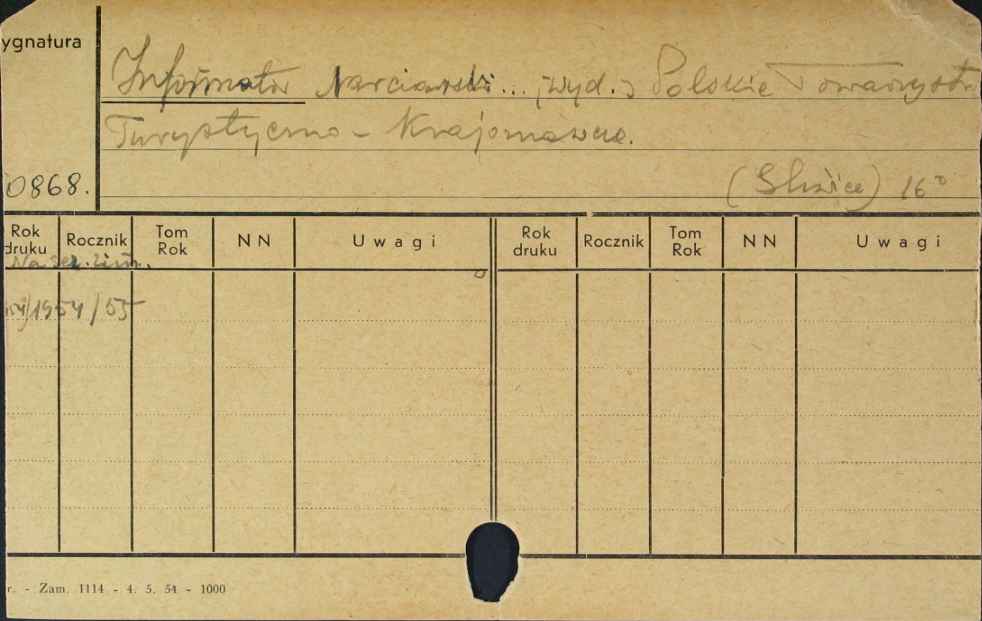 ygnatura
Informator Narciarski... ; wyd. : Polskie Towarzystw.
Turystyczno - Krajoznawcze.
0868.
(Gliwice) 16°
Rok druku Rocznik Tom Rok NN Uwagi Rok druku Rocznik Tom Rok NN Uwagi
Na sez. zim.
1954/55
r. - Zam. 1114 - 4. 5. 54 - 1000